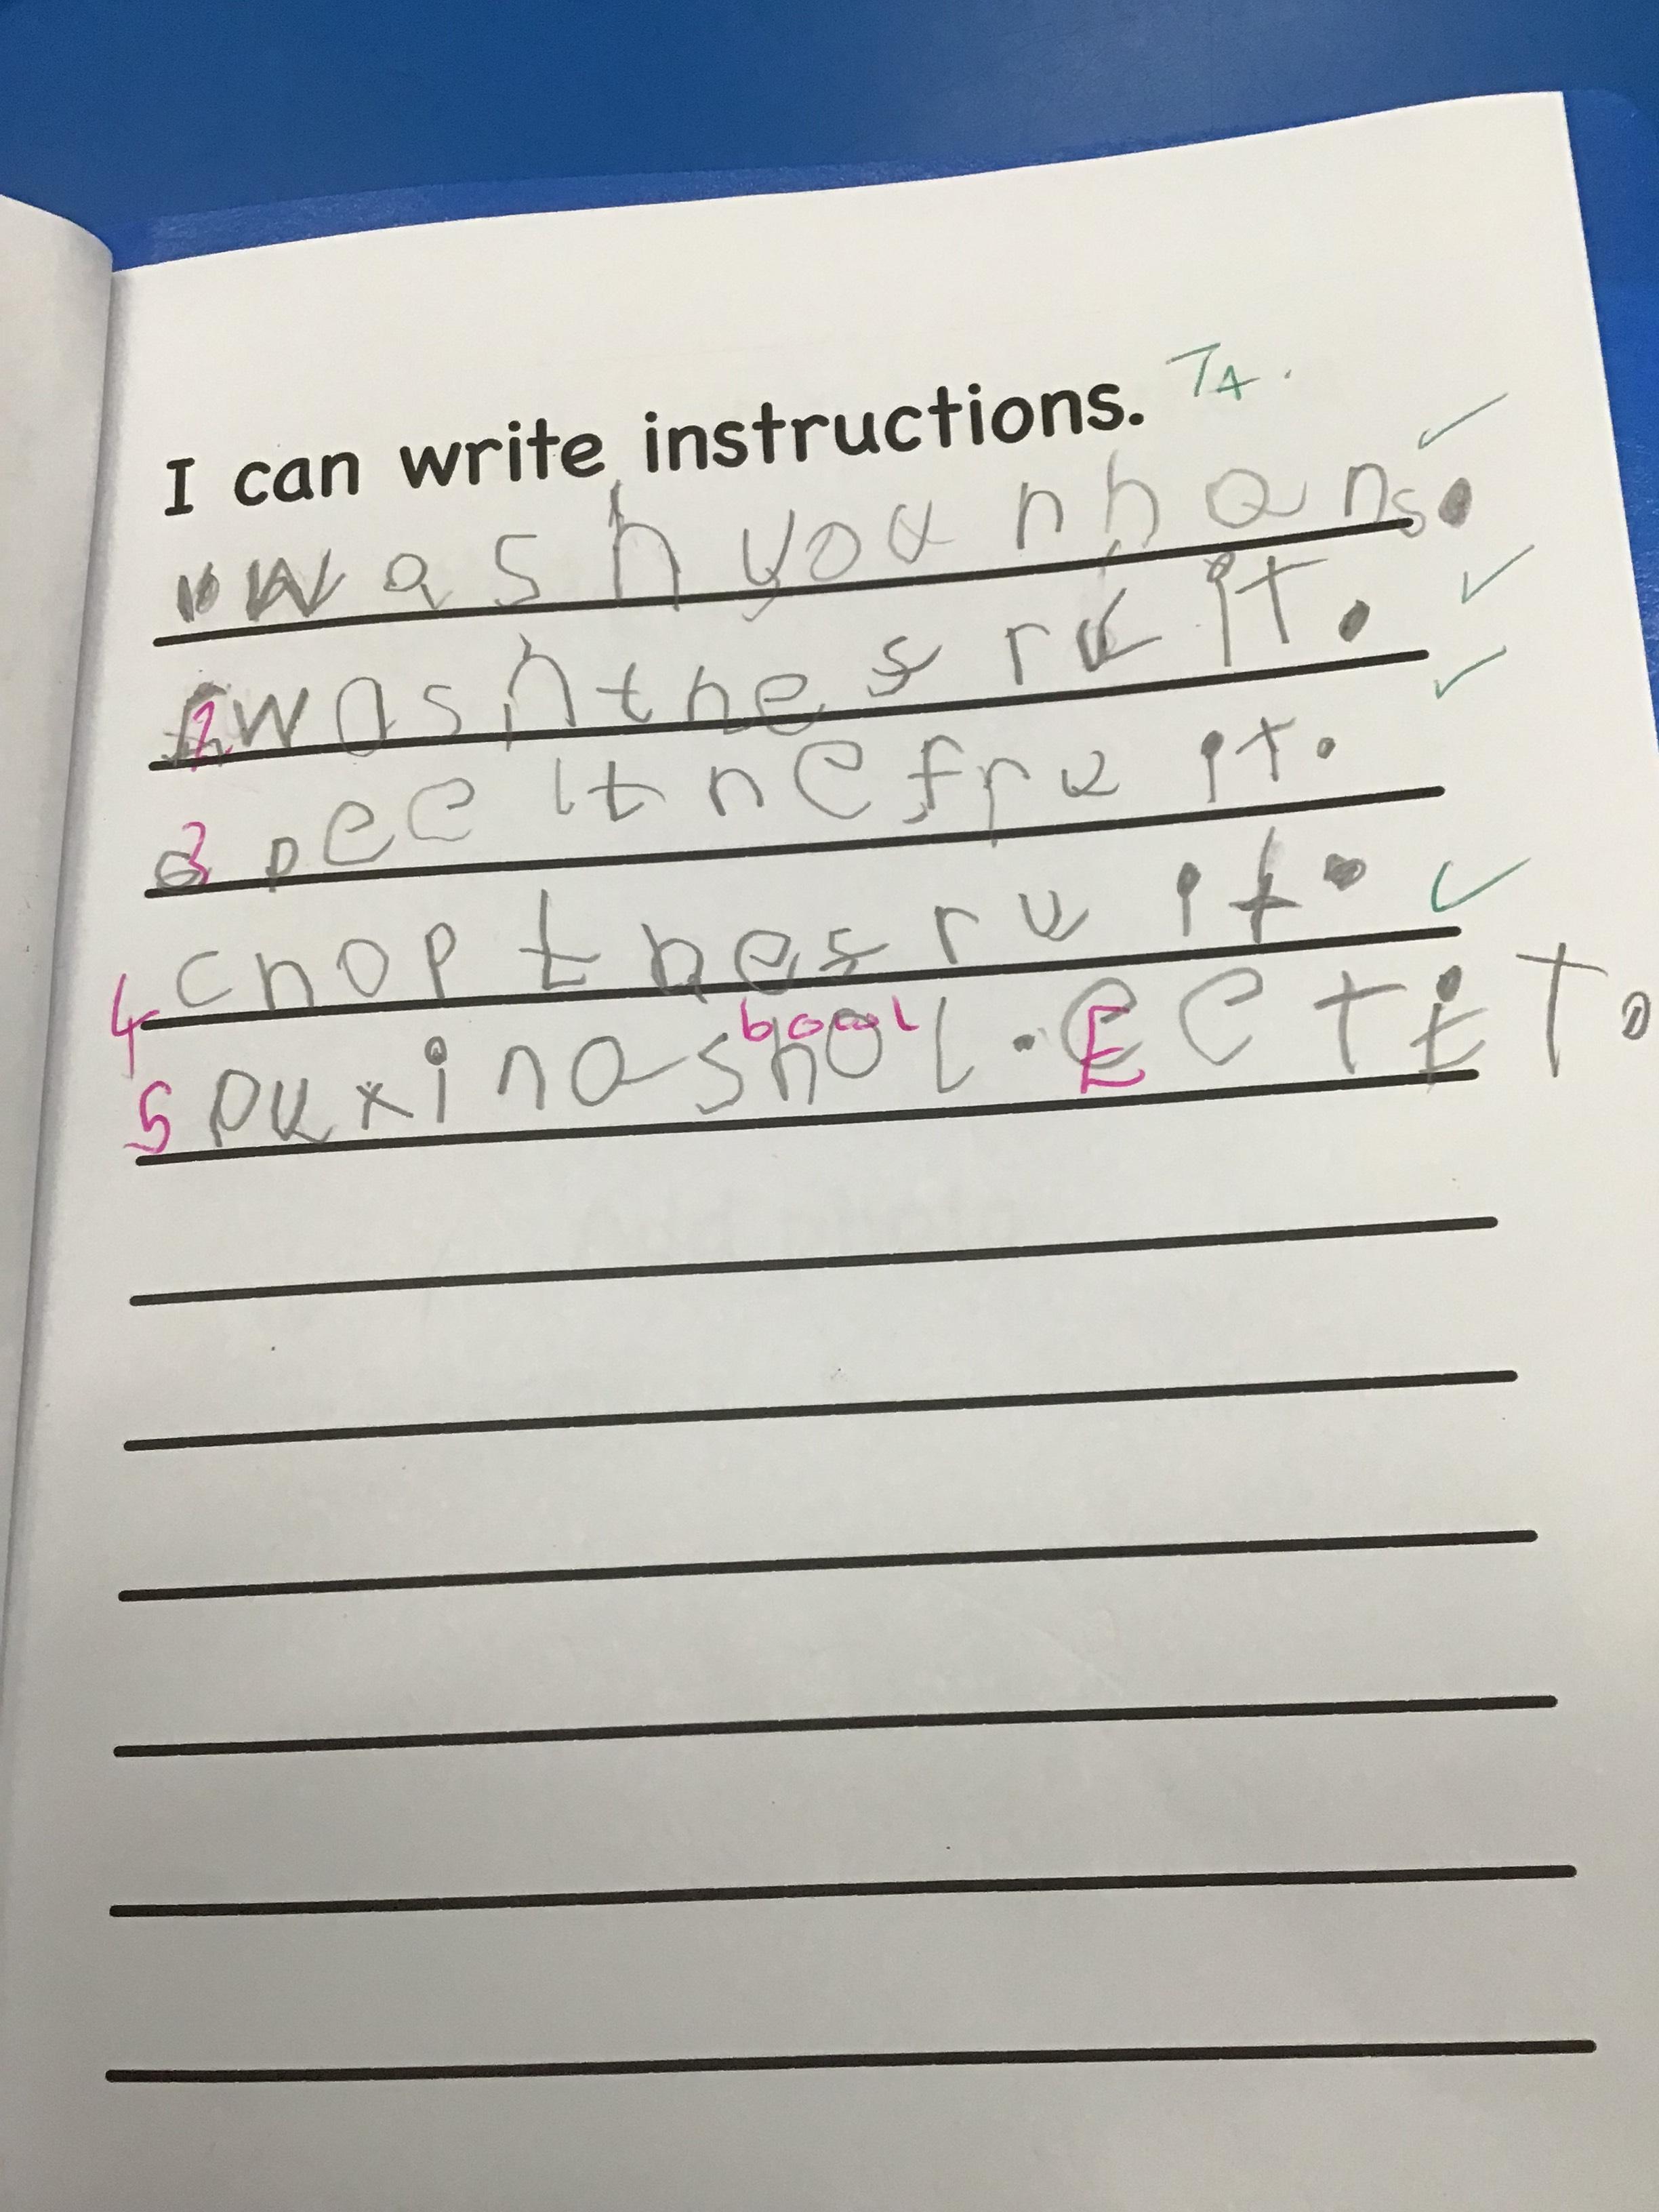 I can write instructions. TA.
wash you n hans.
2 wash the fruit.
3 peel the fruit.
4 chop the fruit.
bowl
5 put in a shol. Eet it.